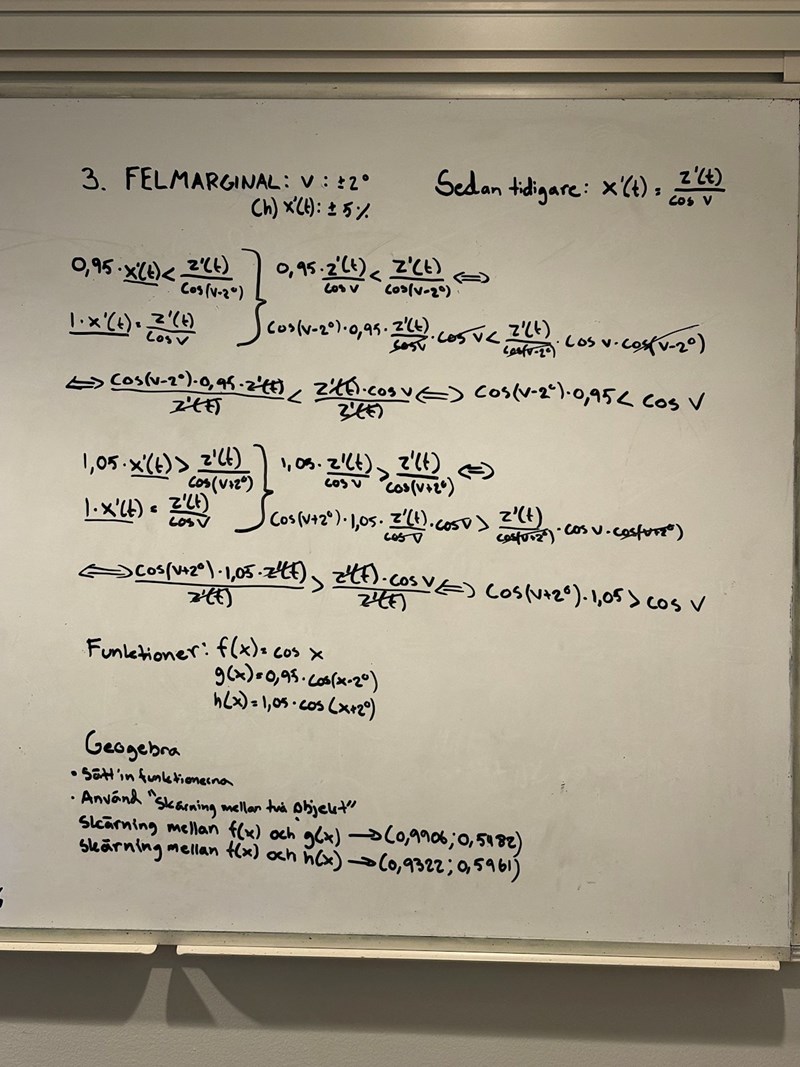 3. FELMARGINAL: v : ±2°
Sedan tidigare: x'(t) = z'(t)/cos v
(h) x'(t): ± 5 %
0,95 · x'(t) < z'(t)/cos(v-2°)
1 · x'(t) = z'(t)/cos v
} 0,95 · z'(t)/cos v < z'(t)/cos(v-2°) ⟺
cos(v-2°) · 0,95 · z'(t)/cos v · cos v < z'(t)/cos(v-2°) · cos v · cos(v-2°)
⟺ cos(v-2°) · 0,95 · z'(t)/z'(t) < z'(t) · cos v/z'(t) ⟺ cos(v-2°) · 0,95 < cos v
1,05 · x'(t) > z'(t)/cos(v+2°)
1 · x'(t) = z'(t)/cos v
} 1,05 · z'(t)/cos v > z'(t)/cos(v+2°) ⟺
cos(v+2°) · 1,05 · z'(t)/cos v · cos v > z'(t)/cos(v+2°) · cos v · cos(v+2°)
⟺ cos(v+2°) · 1,05 · z'(t)/z'(t) > z'(t) · cos v/z'(t) ⟺ cos(v+2°) · 1,05 > cos v
Funktioner: f(x) = cos x
g(x) = 0,95 · cos(x-2°)
h(x) = 1,05 · cos(x+2°)
Geogebra
· Sätt in funktionerna
· Använd "Skärning mellan två objekt"
Skärning mellan f(x) och g(x) → (0,9906; 0,5482)
Skärning mellan f(x) och h(x) → (0,9322; 0,5961)